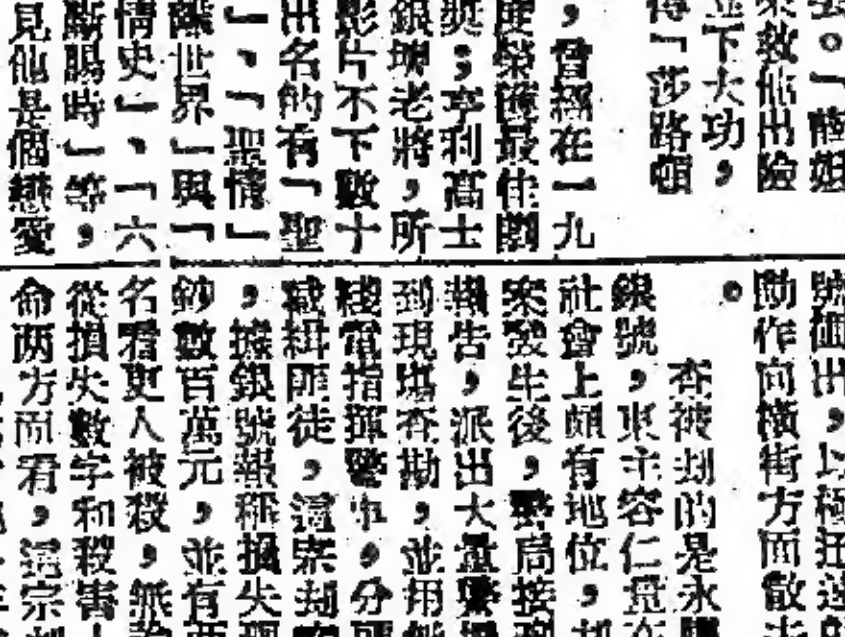 下大功，
「莎路頓
，曾經在一九
度榮獲最佳劇
獎；亨利高士
銀壇老將，所
影片不下數十
出名的有「聖
」、「聖情」
世界」與「
情史」、「六
斷腸時」等，
見他是個戀愛
號衝出，以極迅速
動作向橫街方面散
。
查被刼的是永
銀號，東主容仁
社會上頗有地位，
案發生後，警局接
報告，派出大量警
到現塲查勘，並用
綫電指揮警車，分
緝匪徒，這宗刼
，據銀號報稱損失
鈔數百萬元，並有
名看更人被殺，無論
從損失數字和殺害
命两方面看，這宗